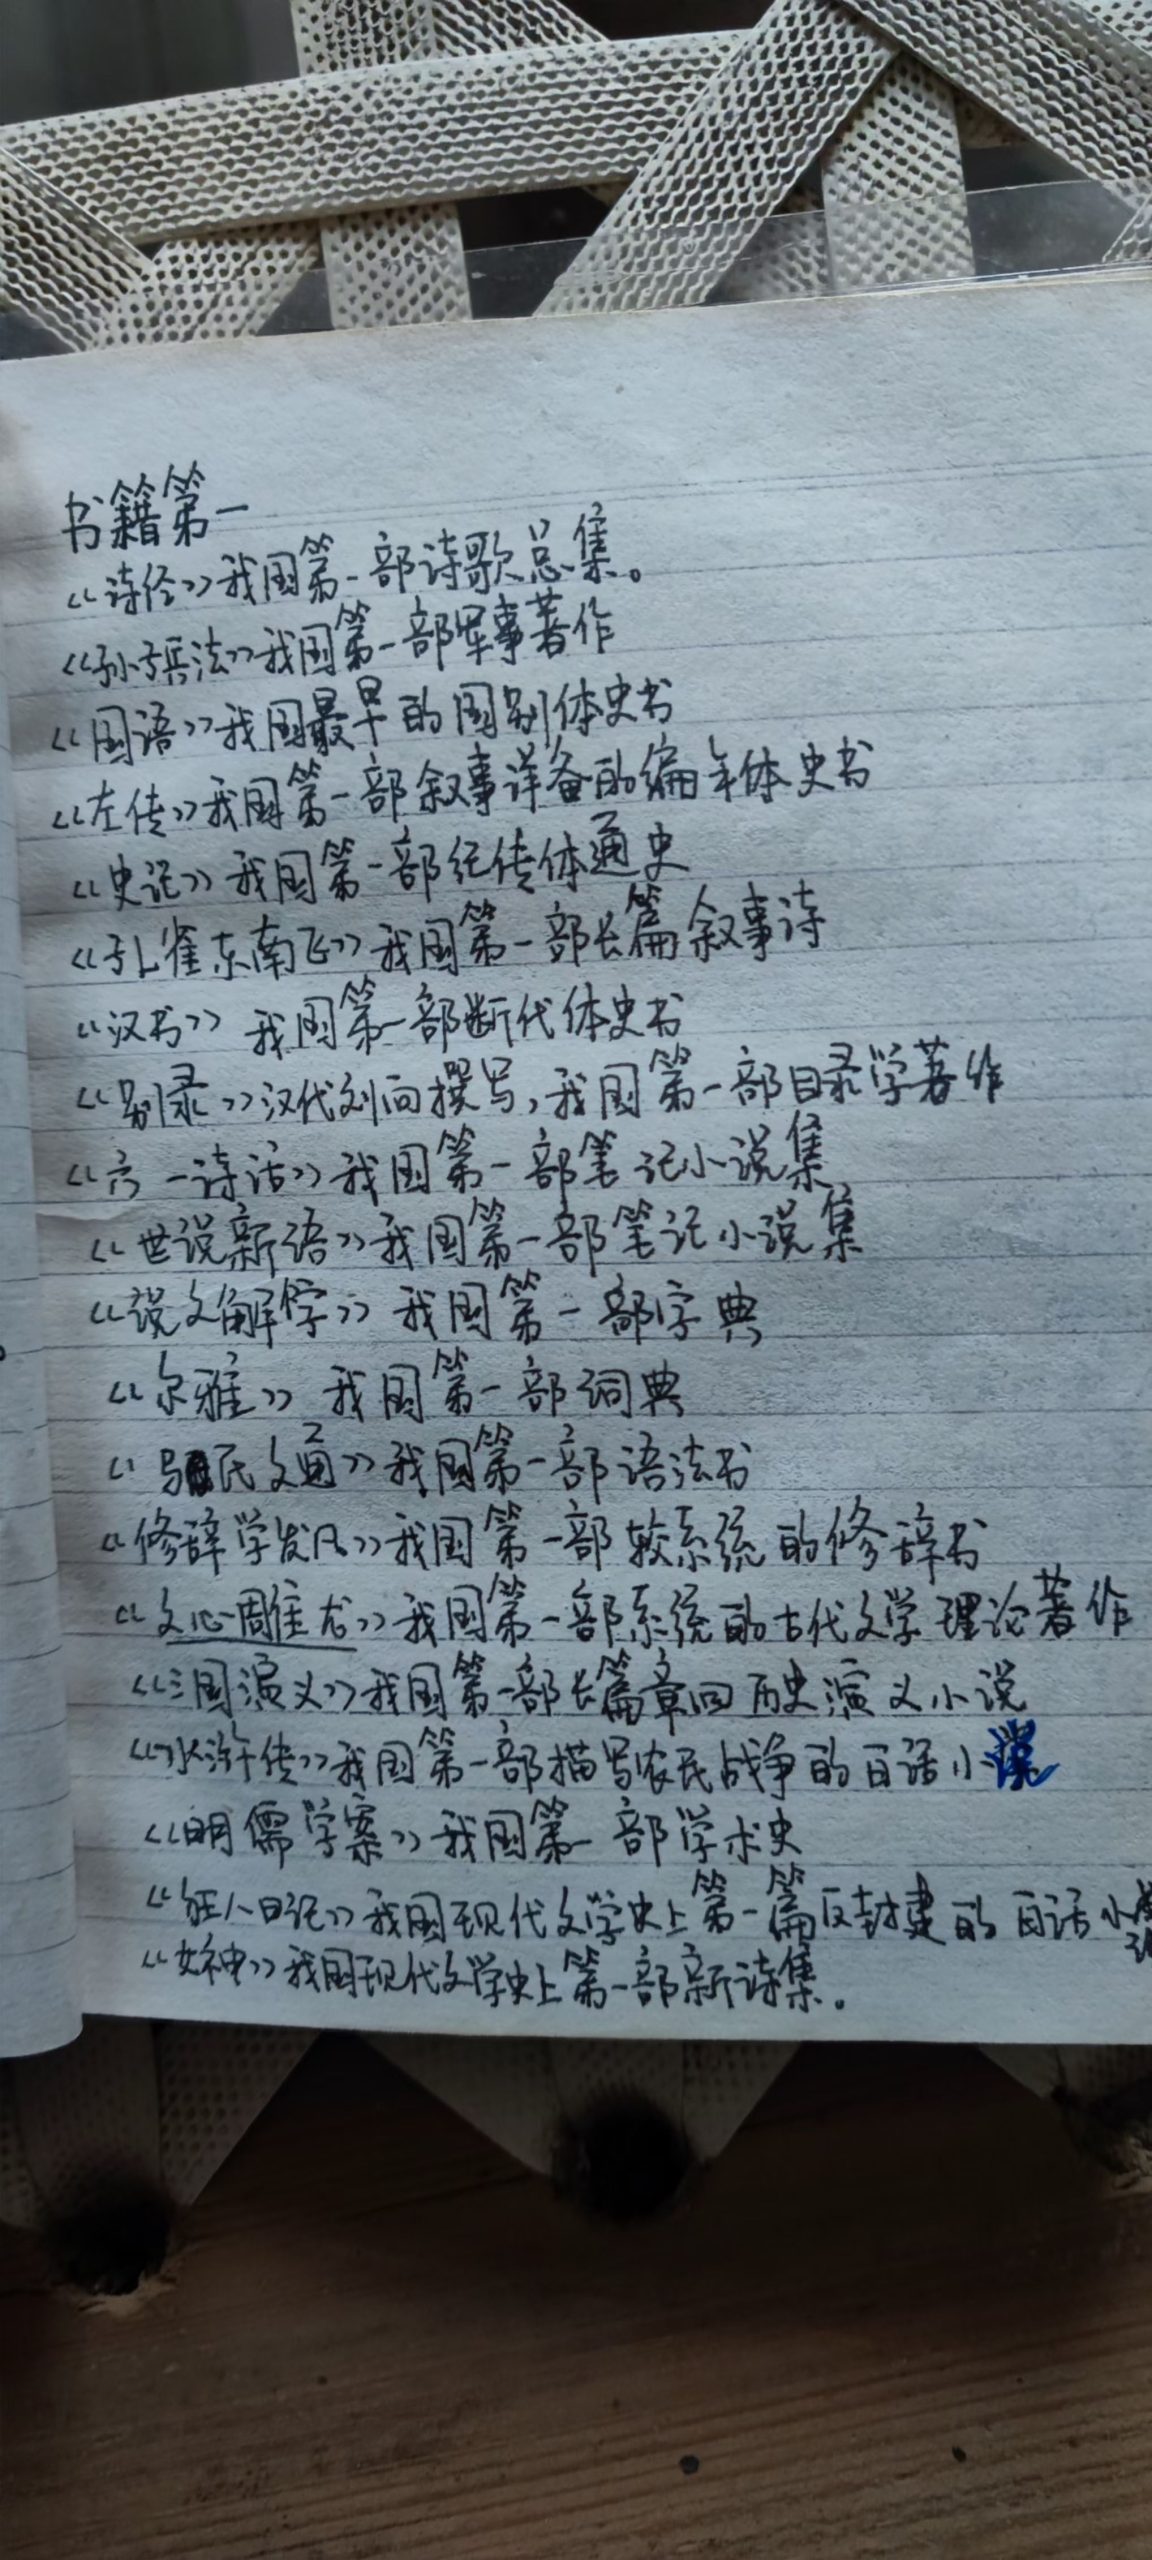 书籍第一
《诗经》我国第一部诗歌总集。
《孙子兵法》我国第一部军事著作
《国语》我国最早的国别体史书
《左传》我国第一部叙事详备的编年体史书
《史记》我国第一部纪传体通史
《孔雀东南飞》我国第一部长篇叙事诗
《汉书》我国第一部断代体史书
《别录》汉代刘向撰写,我国第一部目录学著作
《六一诗话》我国第一部笔记小说集
《世说新语》我国第一部笔记小说集
《说文解字》我国第一部字典
《尔雅》我国第一部词典
《马氏文通》我国第一部语法书
《修辞学发凡》我国第一部较系统的修辞书
《文心雕龙》我国第一部系统的古代文学理论著作
《三国演义》我国第一部长篇章回历史演义小说
《水浒传》我国第一部描写农民战争的白话小说
《明儒学案》我国第一部学术史
《狂人日记》我国现代文学史上第一篇反封建的白话小说
《女神》我国现代文学史上第一部新诗集。